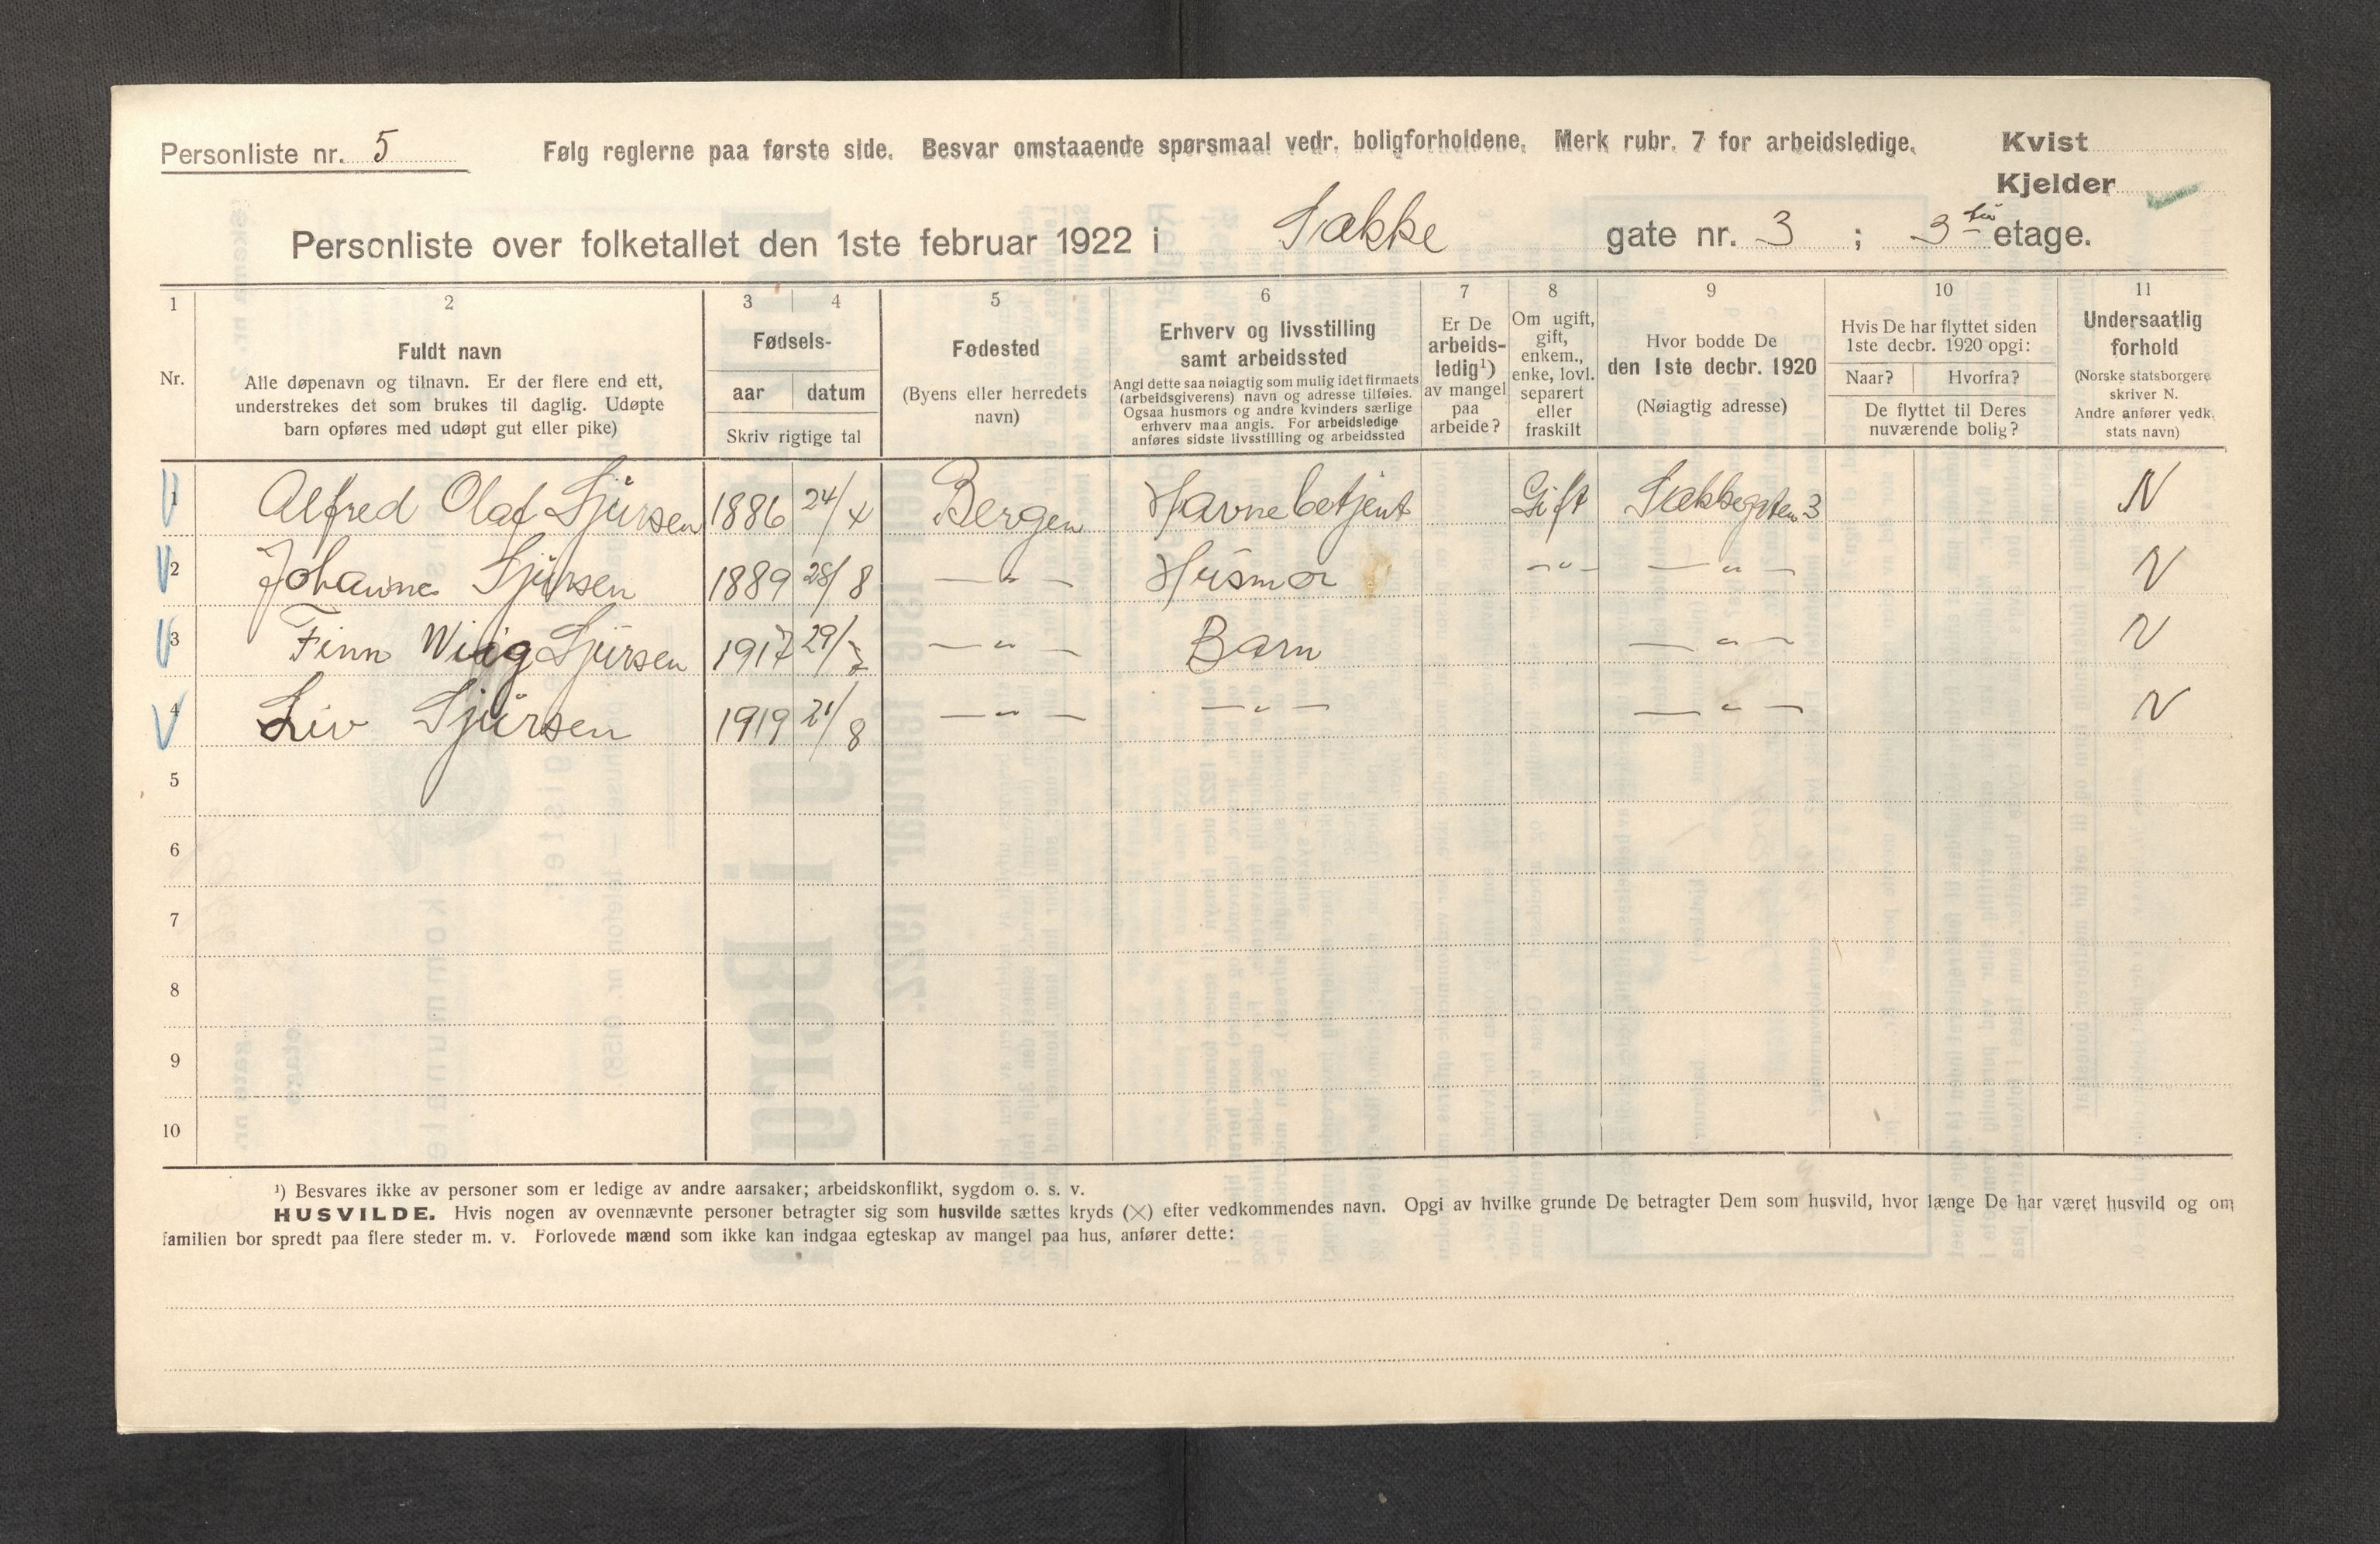 Personliste nr. 5 Følg reglerne paa første side. Besvar omstaaende spørsmaal vedr. boligforholdene. Merk rubr. 7 for arbeidsledige. Kvist
Kjelder
Personliste over folketallet den 1ste februar 1922 i Sække gate nr. 3 ; 3die etage.
1 2 3 4 5 6 7 8 9 10 11
Nr.
Fuldt navn
Alle døpenavn og tilnavn. Er der flere end ett,
understrekes det som brukes til daglig. Udøpte
barn opføres med udøpt gut eller pike)
Fødsels-
aar datum
Skriv rigtige tal
Fødested
(Byens eller herredets
navn)
Erhverv og livsstilling
samt arbeidssted
Angi dette saa nøiagtig som mulig idet firmaets
(arbeidsgiverens) navn og adresse tilføies.
Ogsaa husmors og andre kvinders særlige
erhverv maa angis. For arbeidsledige
anføres sidste livsstilling og arbeidssted
Er De
arbeids-
ledig¹)
av mangel
paa
arbeide?
Om ugift,
gift,
enkem.,
enke, lovl.
separert
eller
fraskilt
Hvor bodde De
den 1ste decbr. 1920
(Nøiagtig adresse)
Hvis De har flyttet siden
1ste decbr. 1920 opgi:
Naar? Hvorfra?
De flyttet til Deres
nuværende bolig?
Undersaatlig
forhold
(Norske statsborgere
skriver N.
Andre anfører vedk.
stats navn)
1 Alfred Olaf Sjursen 1886 24/X Bergen Havnebetjent Gift Sækkegaten 3 N
2 Johanne Sjursen 1889 28/8 — " — Husmor - " - — " — N
3 Finn Wiig Sjursen 1917 29/7 — " — Barn — " — N
4 Liv Sjursen 1919 21/8 — " — — " — — " — N
5
6
7
8
9
10
¹) Besvares ikke av personer som er ledige av andre aarsaker; arbeidskonflikt, sygdom o. s. v.
HUSVILDE. Hvis nogen av ovennævnte personer betragter sig som husvilde sættes kryds (×) efter vedkommendes navn. Opgi av hvilke grunde De betragter Dem som husvild, hvor længe De har været husvild og om
familien bor spredt paa flere steder m. v. Forlovede mænd som ikke kan indgaa egteskap av mangel paa hus, anfører dette: